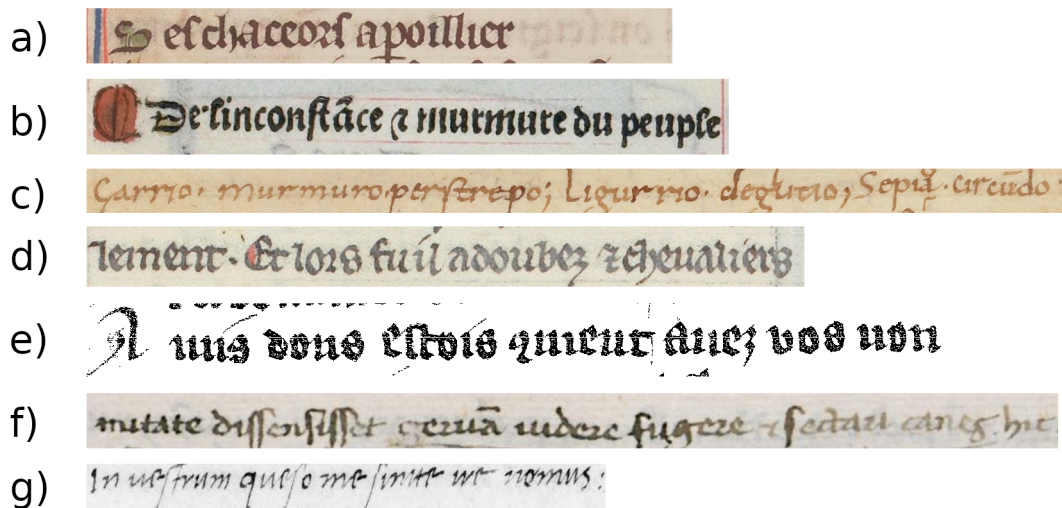 a) S eſchaceorſ apoillier
b) De linconſtãce ⁊ murmure du peuple
c) Garrio. murmuro. perstrepo; Ligurrio. deglutio; Sepia. circũdo
d) lement. Et lors fu il adoubez ⁊ chevaliers
e) A uuis dous estois quient Auez vos non
f) mitate dissensisset ceruã uidere fugere ⁊ sectari canes hic
g) In vestrum queso me sinite